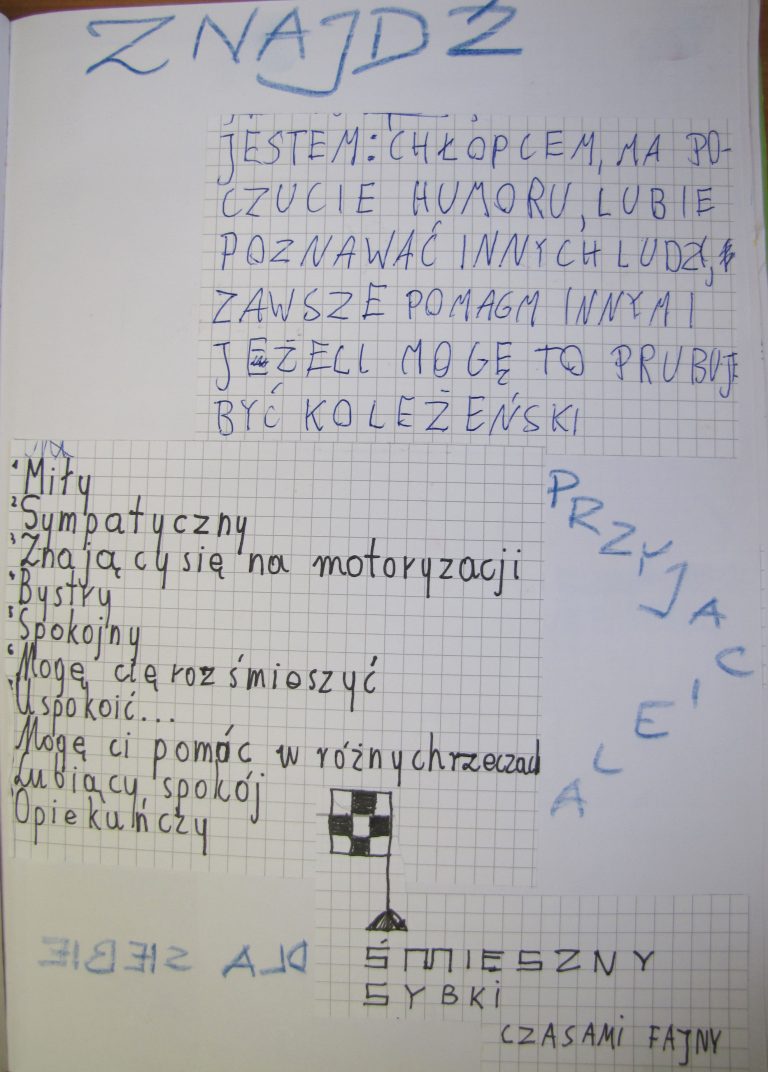 ZNAJDŹ
JESTEM: CHŁOPCEM, MA PO-
CZUCIE HUMORU, LUBIE
POZNAWAĆ INNYCH LUDZI,
ZAWSZE POMAGM INNYM I
JEŻELI MOGĘ TO PRUBUJE
BYĆ KOLEŻEŃSKI
1 Miły
2 Sympatyczny
3 Znający się na motoryzacji
4 Bystry
5 Spokojny
6 Mogę cię rozśmieszyć
7 Uspokoić...
Mogę ci pomóc w różnych rzeczach
Lubiący spokój
Opiekuńczy
PRZYJACIELA
DLA SIEBIE
ŚMIESZNY
SYBKI
CZASAMI FAJNY